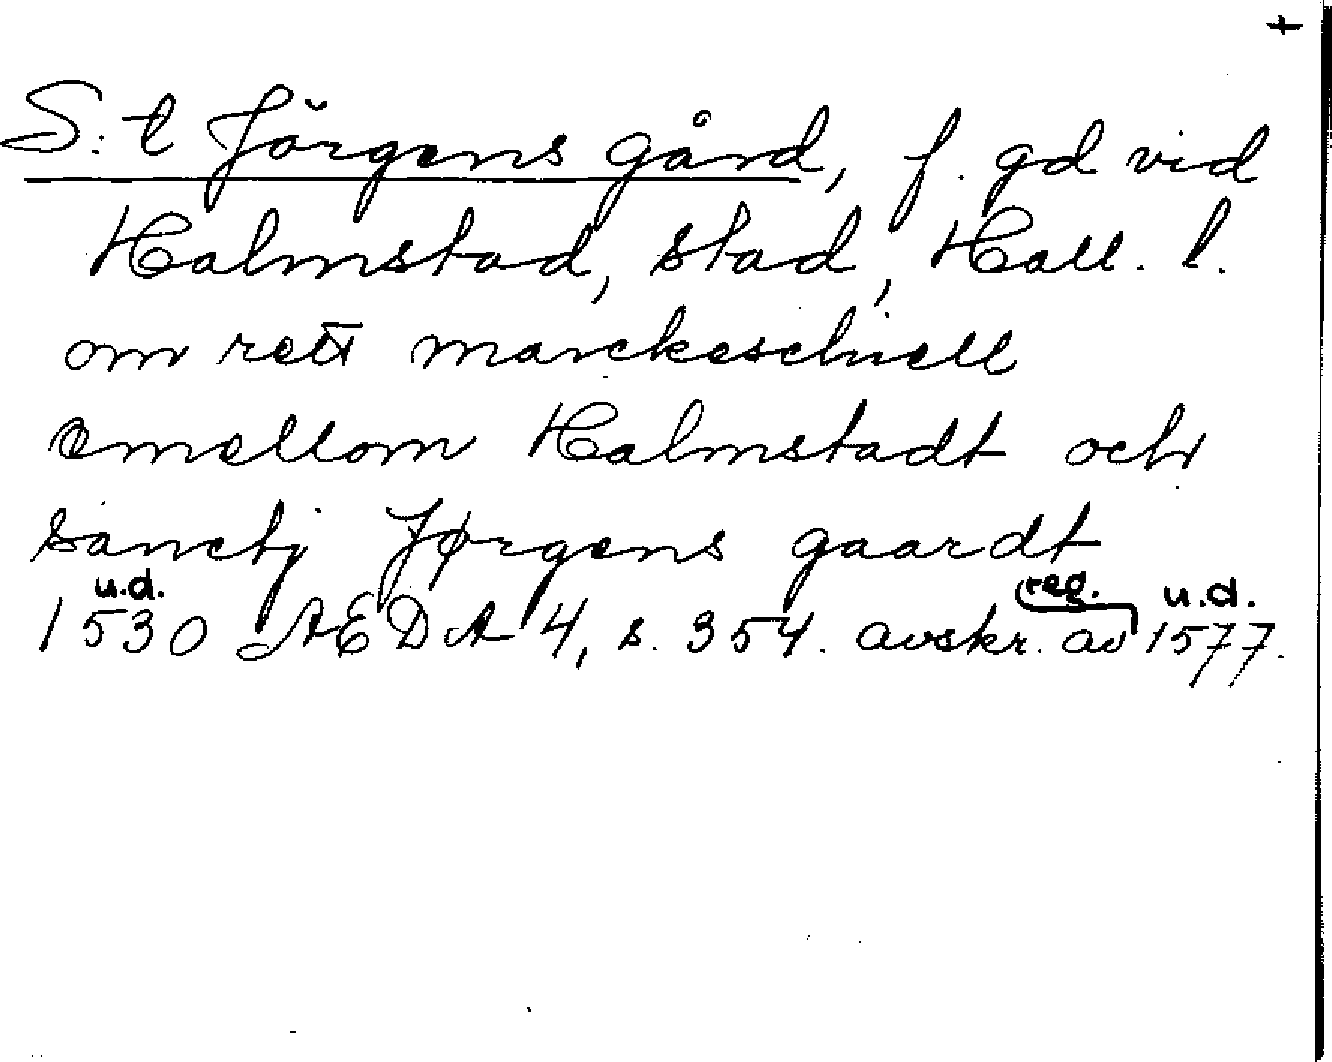 +
S:t Jörgens gård, f. gd vid
Halmstad, stad, Hall. l.
om rett marckeschiell
emellom Halmstadt och
sanctj Jørgens gaardt
u.d. reg. u.d.
1530 ÆDA 4, s. 354. avskr. av 1577.